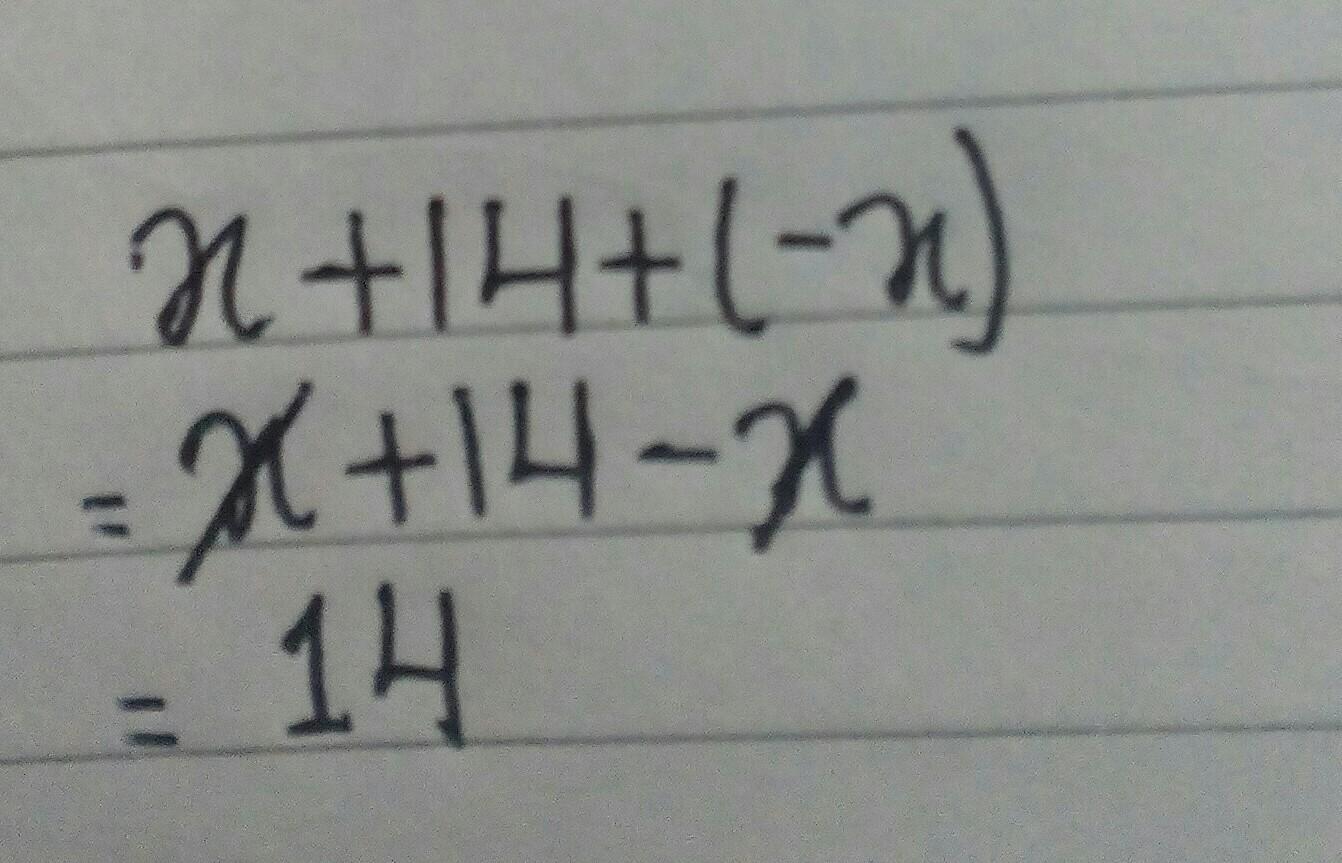 x+14+(-x)
=x+14-x
= 14